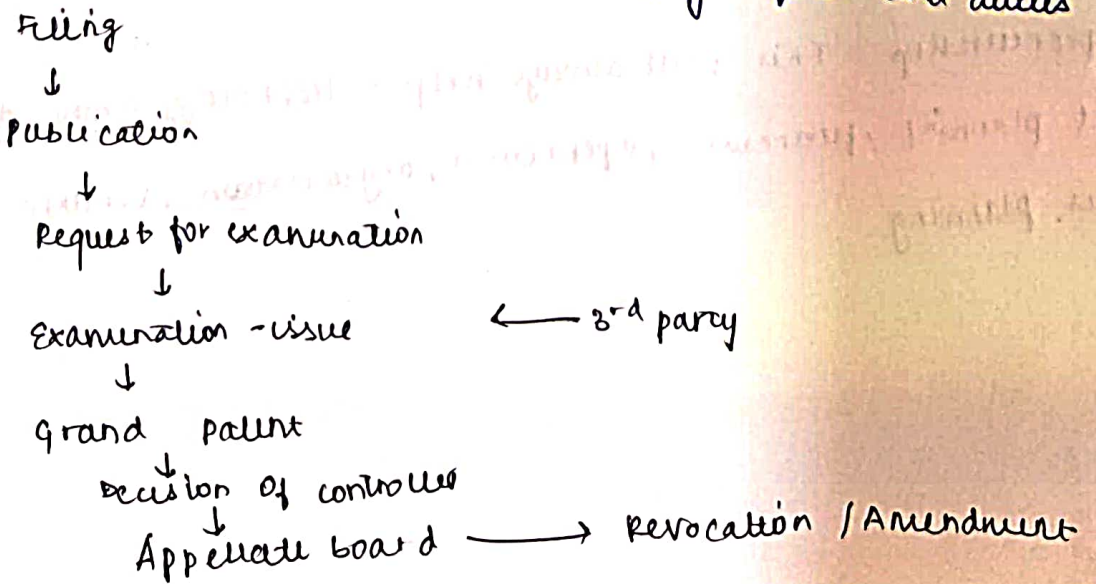 Filing
↓
Publication
↓
Request for examination
↓
Examination - issue ← 3rd party
↓
Grand patent
↓
Decision of controller
↓
Appellate board → Revocation / Amendment